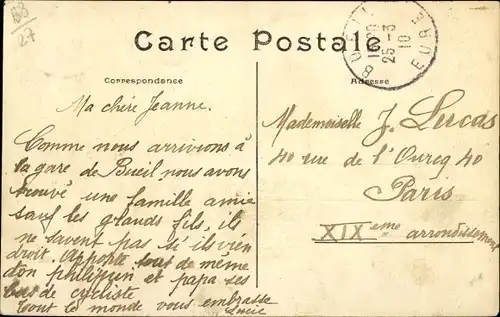 88
27
Carte Postale
BUEIL
16 30
25 - 3
10
EURE
Correspondance
Adresse
Ma chère Jeanne.
Comme nous arrivions à
la gare de Bueil nous avons
trouvé une famille amie
sauf les grands fils, ils
ne savent pas s'ils vien
droit. Apporte tout de même
ton philippin et papa ses
bas de cycliste
tout le monde vous embrasse
Lucie
Mademoiselle J. Lucas
40 rue de l'Ourcq 40
Paris
XIX eme arrondissement